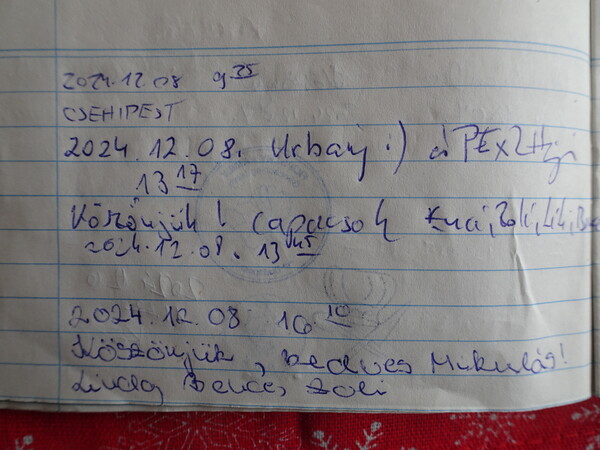 2024.12.08 9 25
CSEHIPEST
2024.12.08. Urbanj :)
13 17
Köszönjük! Capacsok Zoli, Lili,
2024.12.08. 13 45
2024.12.08 16 10
Köszönjük, kedves Mikulás!
Linda, Bence, Zoli